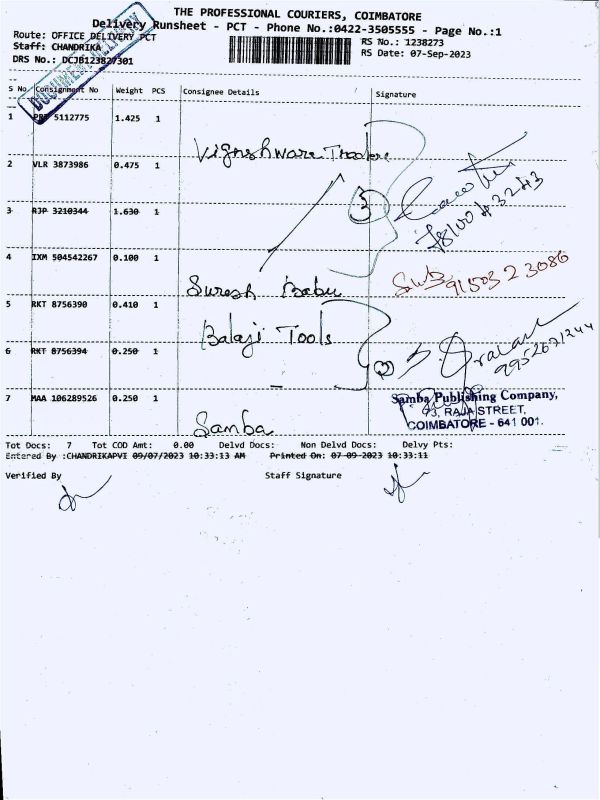 THE PROFESSIONAL COURIERS, COIMBATORE
Delivery Runsheet - PCT - Phone No.:0422-3505555 - Page No.:1
Route: OFFICE DELIVERY PCT
RS No.: 1238273
Staff: CHANDRIKA
RS Date: 07-Sep-2023
DRS No.: DCJB123827301
DOCUMENT DELIVERY
S No. Consignment No Weight PCS Consignee Details Signature
1 5112775 1.425 1
Vigneshwara Traders
2 VLR 3873986 0.475 1
3 RJP 3210344 1.630 1
3
78100 43243
4 IXM 504542267 0.100 1
Suresh Babu
91503 23086
5 RKT 8756390 0.410 1
Balaji Tools
6 RKT 8756394 0.250 1
2
9952621244
7 MAA 106289526 0.250 1
Samba
Samba Publishing Company,
93, RAJA STREET,
COIMBATORE - 641 001.
Tot Docs: 7 Tot COD Amt: 0.00 Delvd Docs: Non Delvd Docs: Delvy Pts:
Entered By :CHANDRIKAPVI 09/07/2023 10:33:13 AM Printed On: 07-09-2023 10:33:11
Verified By Staff Signature